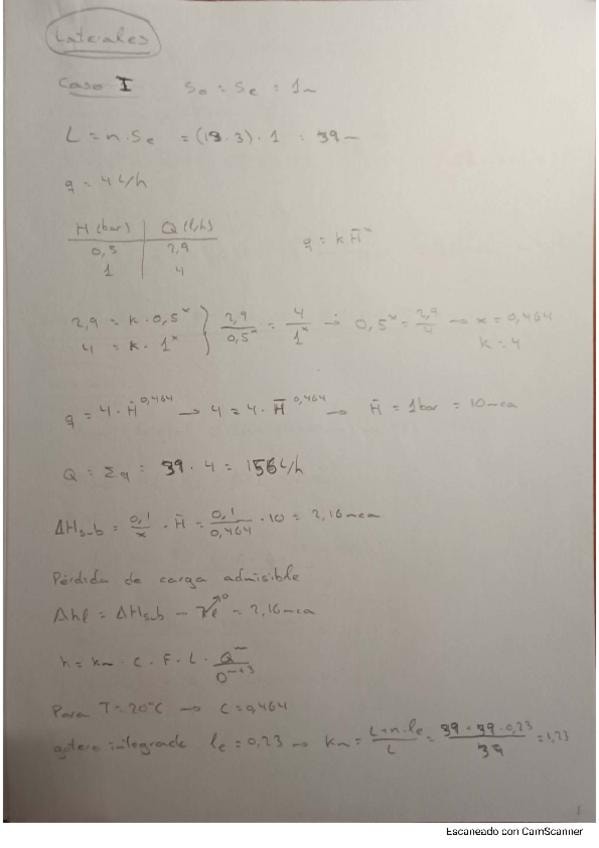 Laterales
Caso I So = Se = 1m
L = n·Se = (13·3)·1 = 39m
q = 4 L/h
H (bar) Q (l/h)
0,5 2,9
1 4
q = k H̄ˣ
2,9 = k·0,5ˣ
4 = k·1ˣ
2,9/0,5ˣ = 4/1ˣ → 0,5ˣ = 2,9/4 → x = 0,464
k = 4
q = 4·H̄^0,464 → 4 = 4·H̄^0,464 → H̄ = 1bar = 10mca
Q = Σq = 39·4 = 156 L/h
ΔHsub = 0,1/x · H̄ = 0,1/0,464 · 10 = 2,16mca
Pérdida de carga admisible
Δhl = ΔHsub - = 2,16mca
h = km · C · F · L · Q^m/D^m+3
Para T = 20°C → C = 0,464
gotero integrado le = 0,23 → km = L+n·le/L = 39+39·0,23/39 = 1,23
1
Escaneado con CamScanner